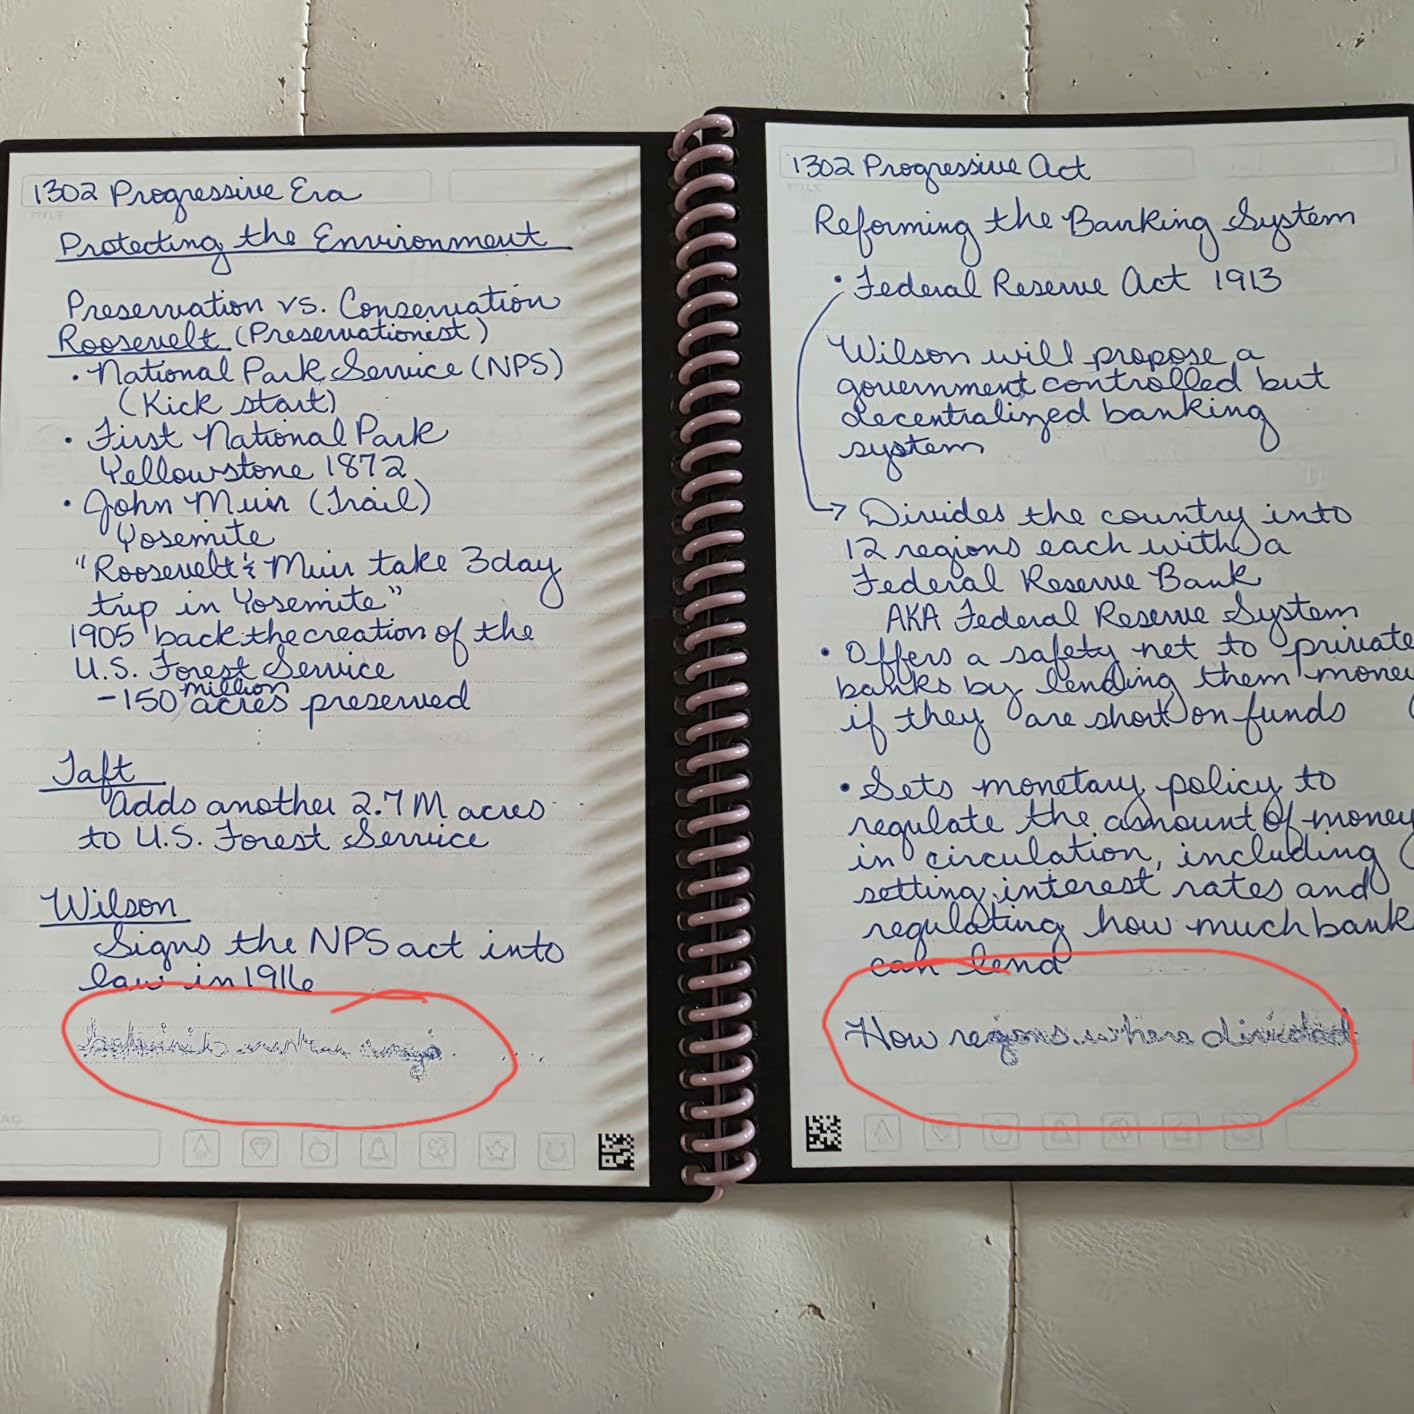 1302 Progressive Era
Protecting the Environment
Preservation vs. Conservation
Roosevelt (Preservationist)
• National Park Service (NPS)
(Kick start)
• First National Park
Yellowstone 1872
• John Muir (Trail)
Yosemite
"Roosevelt & Muir take 3 day
trip in Yosemite"
1905 back the creation of the
U.S. Forest Service
- 150 million acres preserved
Taft
Adds another 2.7 M acres
to U.S. Forest Service
Wilson
Signs the NPS act into
law in 1916
1302 Progressive Act
Reforming the Banking System
• Federal Reserve Act 1913
Wilson will propose a
government controlled but
decentralized banking
system
→ Divides the country into
12 regions each with a
Federal Reserve Bank
AKA Federal Reserve System
• Offers a safety net to private
banks by lending them money
if they are short on funds
• Sets monetary policy to
regulate the amount of money
in circulation, including
setting interest rates and
regulating how much bank
can lend
How regions where divided